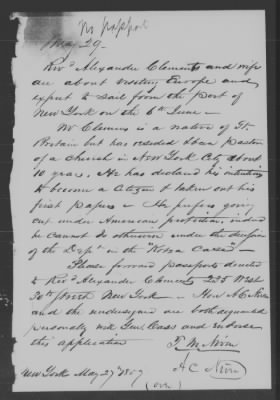 No passport
May 29.
Revd Alexander Clements and wife
are about visiting Europe and
expect to sail from the port of
New York on the 6th June —
Mr Clemens is a native of Gt.
Britain but has resided & been Pastor
of a Church in New York City about
10 years. He has declared his intention
to become a Citizen & taken out his
first papers — He prefers going
out under American protection, indeed
he cannot do otherwise under the decision
of the Dept in the "Kotza Case" —
Please forward passports directed
to Revd Alexander Clements 235 West
30th Street New York — Hon A C Niven
and the undersigned are both acquainted
personally with Gen. Cass and endorse
this application
T. M. Niven
A C Niven
New York May 27th 1857
(over)